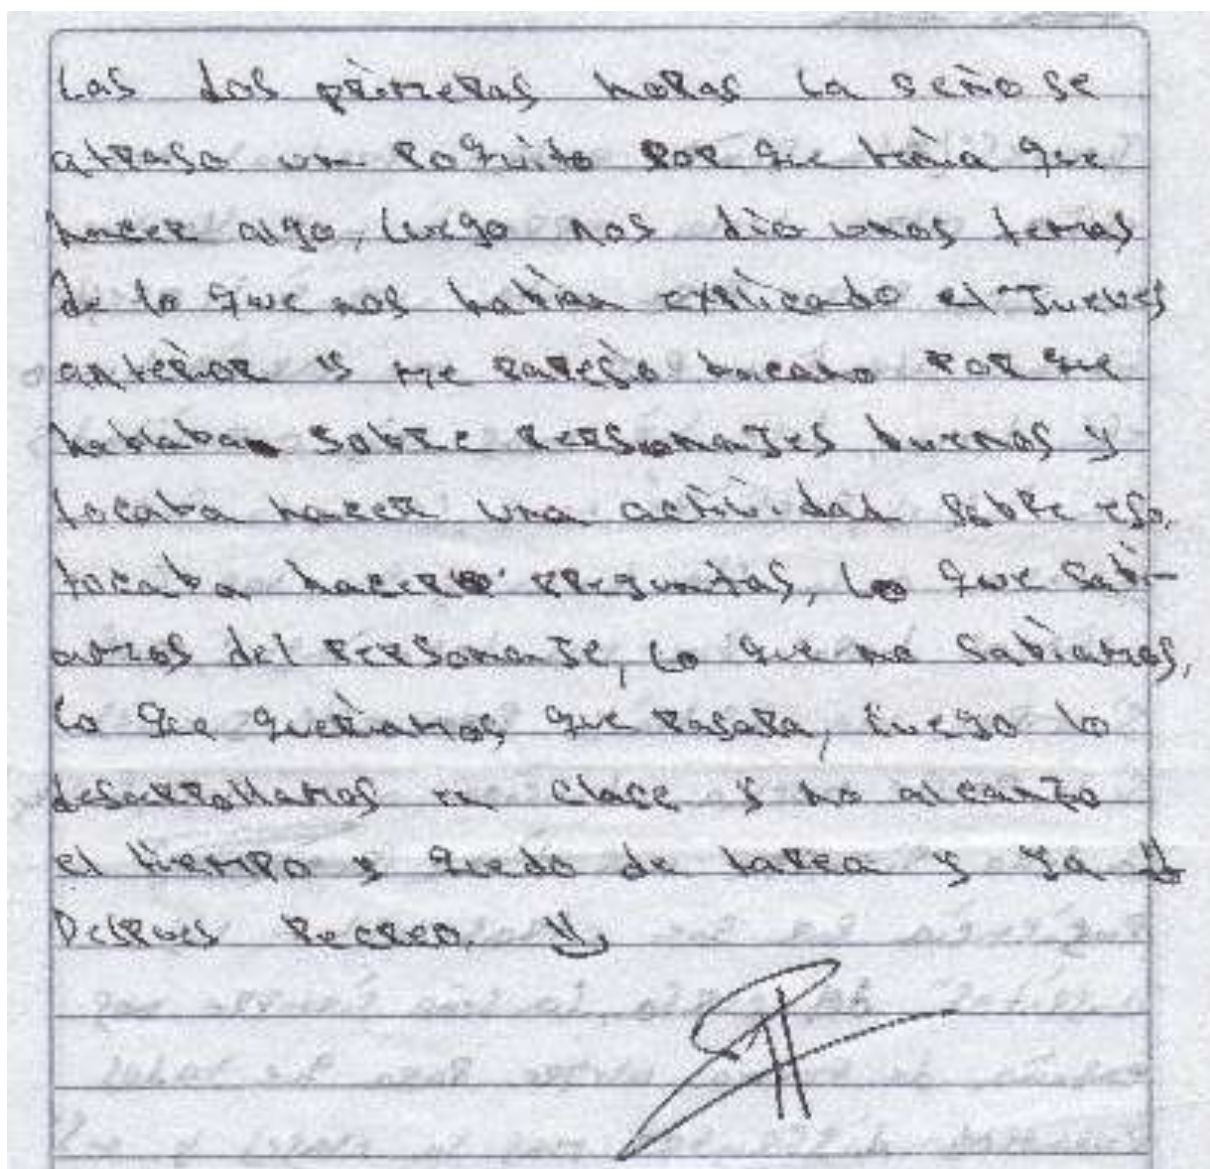 Las dos primeras horas la seño se
atraso un poquito por que tenia que
hacer algo, luego nos dio unos temas
de lo que nos habian explicado el Jueves
anterior y me paresio bacano por que
hablaban sobre personajes buenos y
tocaba hacer una actividad sobre eso,
tocaba hacer preguntas, lo que sabi-
amos del personaje, lo que no sabiamos,
lo que queriamos que pasara, luego lo
desarrollamos en clace y no alcanzo
el tiempo y quedo de tarea y ya
Despues Recreo.